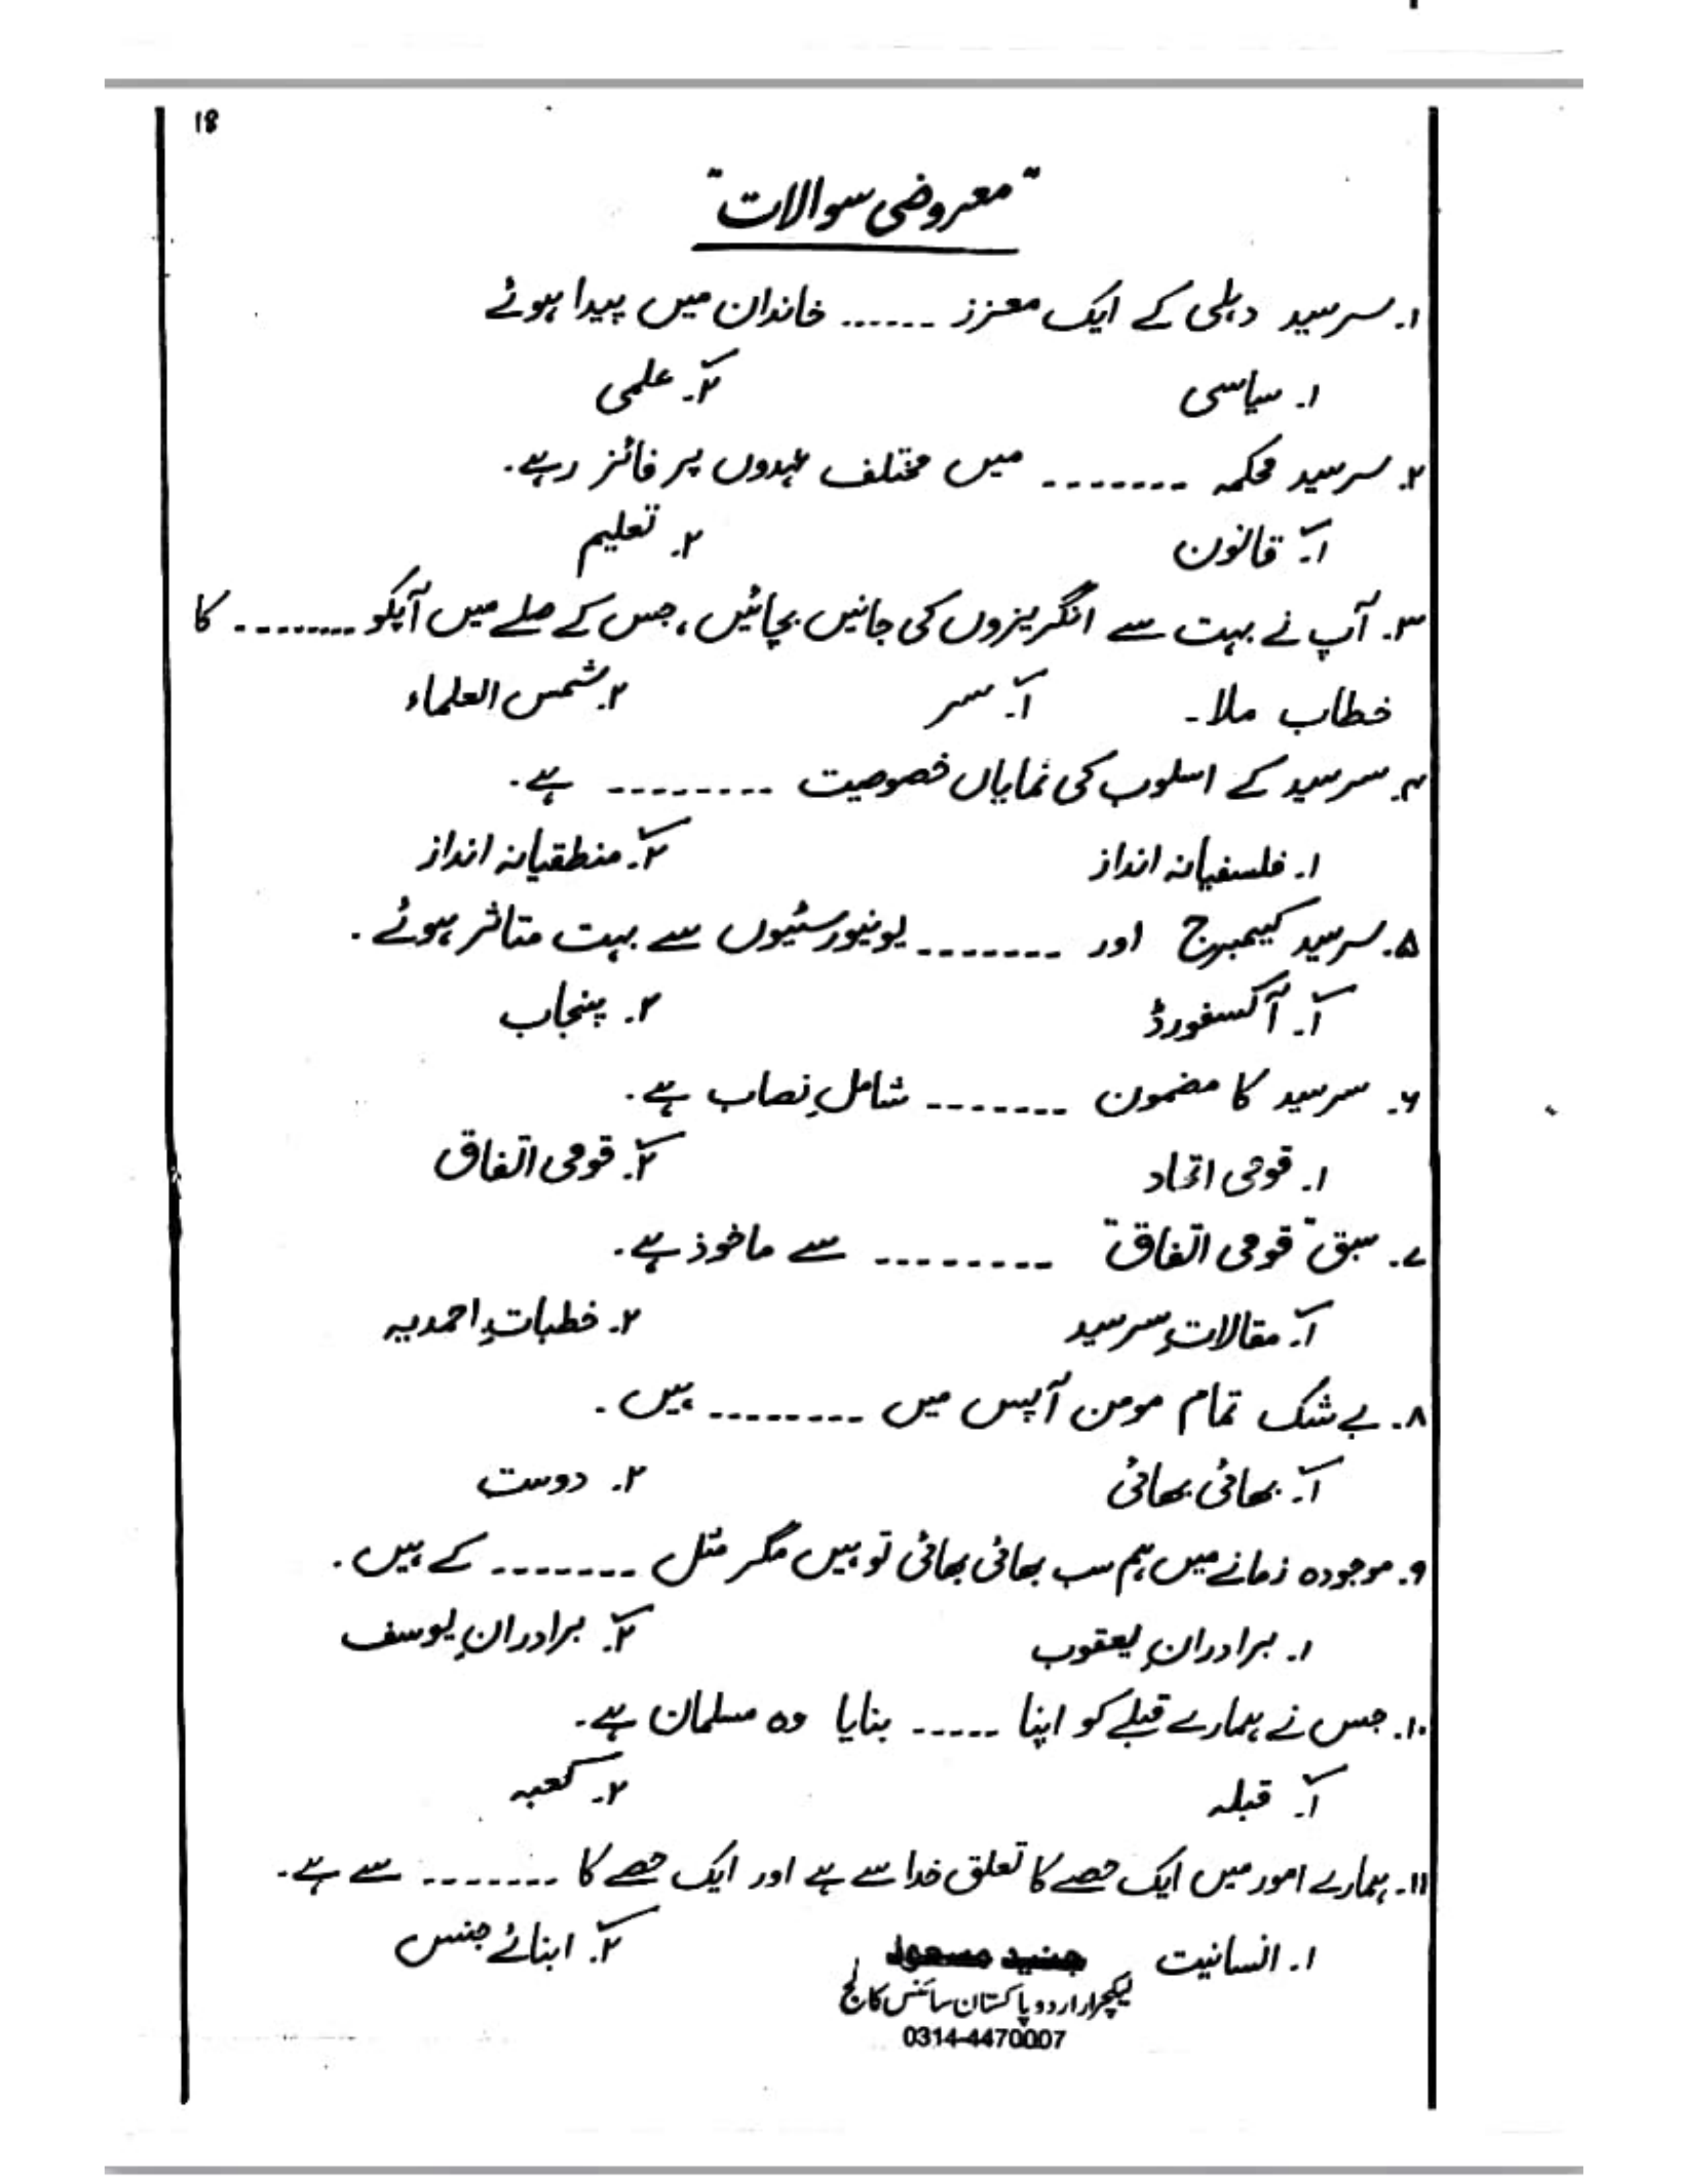 18
"معروضی سوالات"
۱۔ سرسید دہلی کے ایک معزز ------ خاندان میں پیدا ہوئے
۱۔ سیاسی ۲۔ علمی
۲۔ سرسید محکمہ ------- میں مختلف عہدوں پر فائز رہے۔
۱۔ قانون ۲۔ تعلیم
۳۔ آپ نے بہت سے انگریزوں کی جانیں بچائیں، جس کے صلے میں آپکو -------- کا
خطاب ملا۔ ۱۔ سر ۲۔ شمس العلماء
۴۔ سرسید کے اسلوب کی نمایاں خصوصیت -------- ہے۔
۱۔ فلسفیانہ انداز ۲۔ منطقیانہ انداز
۵۔ سرسید کیمبرج اور ------- یونیورسٹیوں سے بہت متاثر ہوئے۔
۱۔ آکسفورڈ ۲۔ پنجاب
۶۔ سرسید کا مضمون ------- شاملِ نصاب ہے۔
۱۔ قومی اتحاد ۲۔ قومی اتفاق
۷۔ سبق "قومی اتفاق" -------- سے ماخوذ ہے۔
۱۔ مقالاتِ سرسید ۲۔ خطباتِ احمدیہ
۸۔ بے شک تمام مومن آپس میں -------- ہیں۔
۱۔ بھائی بھائی ۲۔ دوست
۹۔ موجودہ زمانے میں ہم سب بھائی بھائی تو ہیں مگر مثل ------- کے ہیں۔
۱۔ برادرانِ یعقوب ۲۔ برادرانِ یوسف
۱۰۔ جس نے ہمارے قبلے کو اپنا ----- بنایا وہ مسلمان ہے۔
۱۔ قبلہ ۲۔ کعبہ
۱۱۔ ہمارے امور میں ایک حصے کا تعلق خدا سے ہے اور ایک حصے کا ------- سے ہے۔
۱۔ انسانیت ۲۔ ابنائے جنس
جنید مسعود
لیکچرار اردو پاکستان سائنس کالج
0314-4470007